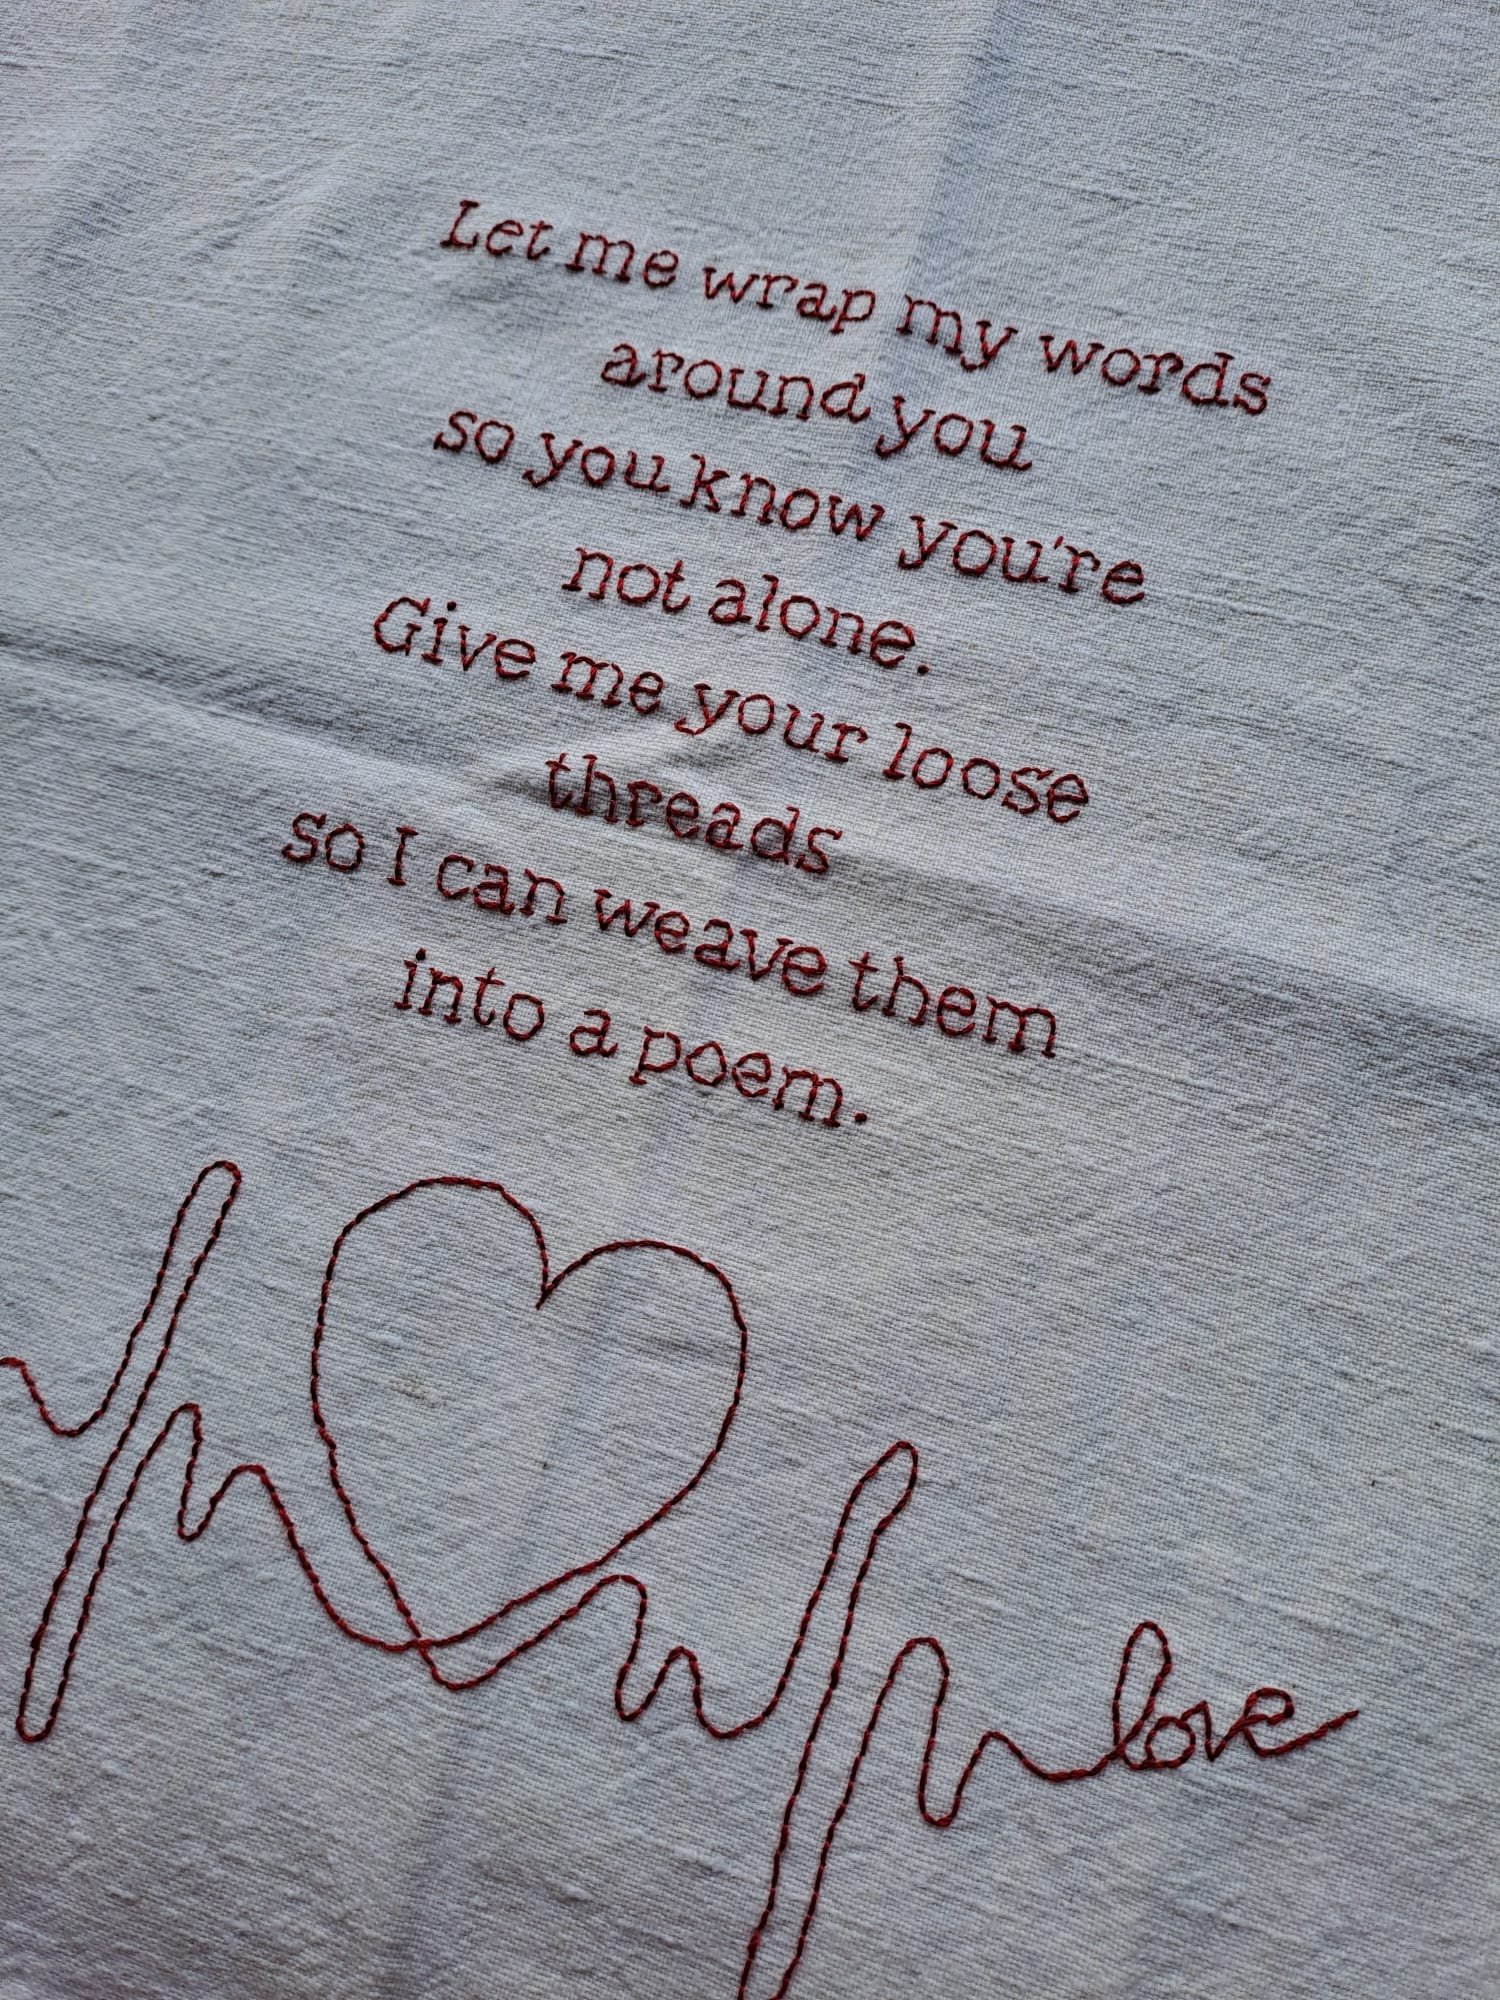 Let me wrap my words
around you
so you know you're
not alone.
Give me your loose
threads
so I can weave them
into a poem.
love